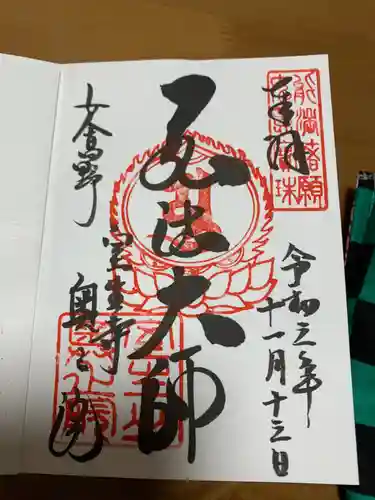 奉拝
令和三年
十一月十三日
弘法大師
女人高野
室生寺
奥之院